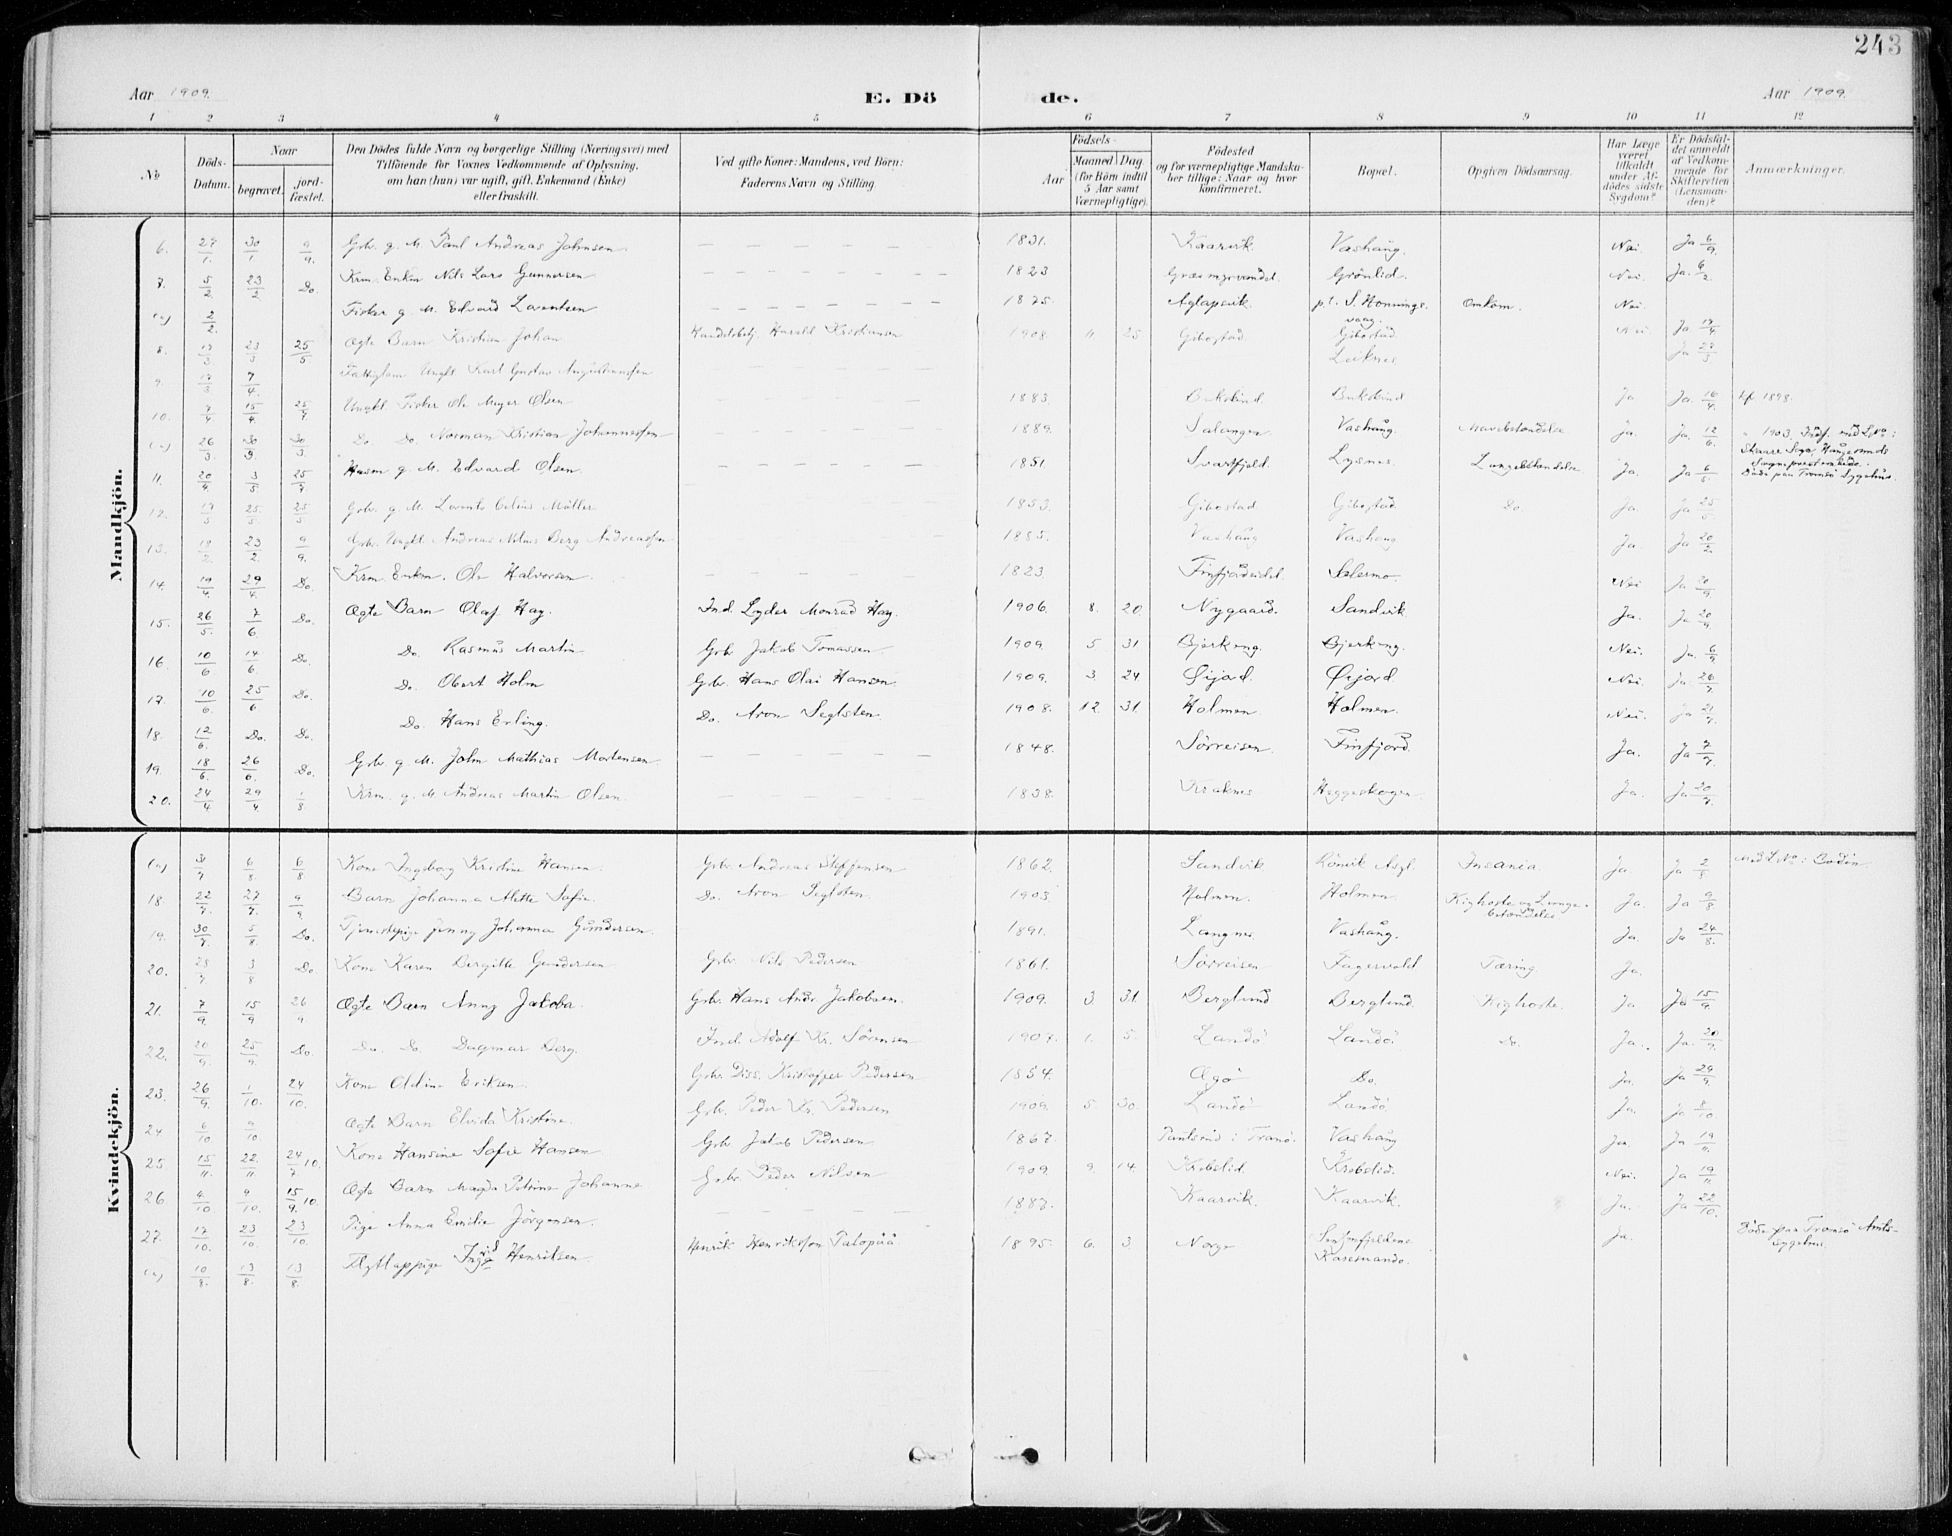 243
Aar 1909. E. Dö de. Aar 1909.
1 2 3 4 5 6 7 8 9 10 11 12
No Döds-Datum. Naar begravet. jordfæstet. Den Dödes fulde Navn og borgerlige Stilling (Næringsvei) med Tilföiende for Voxnes Vedkommende af Oplysning, om han (hun) var ugift, gift, Enkemand (Enke) eller fraskilt. Ved gifte Koner: Mandens, ved Börn: Faderens Navn og Stilling. Födsels- Aar Maaned Dag (for Börn indtil 5 Aar samt Værnepligtige). Födested og for værnepligtige Mandskaber tillige: Naar og hvor konfirmeret. Bopæl. Opgiven Dödsaarsag. Har Læge været tilkaldt under Afdödes sidste Sygdom? Er Dödsfaldet anmeldt af Vedkommende for Skifteretten (Lensmanden)? Anmærkninger.
Mandkjön.
6. 27/1. 30/1 9/9. Grb. g. M. Paul Andreas Johnsen. 1831. Kaarvik. Vashaug. Nei. Ja 6/9.
5/2. 23/2 Do. Krm. Enkm Nils Lars Gunnersen 1823 Grönlid. Nei. Ja. 6/2.
2/2. Fisker g. M. Edvard Lorentsen 1875. Aglapsvik. p.t. S. Honningsvaag. Omkom. Nei.
8. 23/3 25/5 Ægte Barn Kristian Johan Harald Kristiansen 1908. 11. 25 Gibostad Gibostad Nei Ja 17/4
9. 7/4. Fattiglem Ungk. Karl Gustav Leiknes
10. 7/4 15/4. 25/7 Ungkl. Fisker Ole Meyer Olsen 1883 Bukskind. Bukskind Ja Ja. 16/4. kf. 1898.
26/3. 30/3 30/3. Do. Do. Norman Kristian Johannessen 1889. Salangen. Vashaug. Mavebetændelse Ja. Ja. 12/6. 1903. Död paa Tromsö Sygehus.
11. 20/4 3/5 25/7 Husm g. M. Edvard Olsen. 1851. Svartfjeld. Lysnes. Lungebetændelse Ja. Ja 6/5.
12. 17/5 25/5. 25/5 Grb. g. M. Lorents Müller 1853. Gibostad Gibostad Do. Ja. Ja 25/5
13. 23/2. 9/9. Grb. Ungkl. Andreas Nilms Berg Andreassen 1885. Vashaug Vashaug Ja. Ja 20/2.
14. 19/4. 29/4. Do. Krm. Enkm. Ole Halvorsen. 1823. Finfjordeidet. Solermo. Nei Ja 20/9
15. 26/5. 7/6. Do. Ægte Barn Olaf Hay. Ind. Lyder Monrad Hay. 1906. 8. 20. Nygaard. Sandvik Ja. Ja 20/9.
16. 10/6 14/6 Do. Do. Rasmus Martin Grb. Jakob Tomassen 1909. 5 31 Bjerkeng. Bjerkeng. Nei. Ja. 6/9
17. 10/6. 25/6 Do. Do. Obert Holm Grb. Hans Olai Hansen. 1909. 3 24 Øijord. Øijord Nei. Ja. 20/7.
18. 12/6. Do. Do. Do. Hans Erling. Do. Aron Seglsten. 1908. 12. 31. Holmen. Holmen. Nei. Ja 21/7.
19. 18/6. 26/6. Do. Grb. g. M. John Mathias Mortensen 1848. Sörreisen. Finfjord. Ja. Ja 7/7.
20. 24/4 29/4 1/8 Krm. g. M Andreas Martin Olsen. 1838. Kraknes Heggeskogen. Ja. Ja 20/7.
Kvindekjön.
31/7 6/8 6/8 Kone Ingeborg Kristine Hansen. Grb. Andreas Steffensen 1862. Sandvik Rönvik Asyl. Insania. Ja Ja 2/8 Bodin.
18. 22/7. 27/7. 9/9. Barn Johanna Alette Sofie. Do. Aron Seglsten. 1903. Holmen. Holmen. Kighoste og Lungebetændelse Ja. Ja 9/8
19. 30/7. 5/8 Do. Tjenestepige Jenny Johanna Gundersen. 1891. Langnes. Vashaug. Ja. Ja 24/8.
20. 28/7 3/8 Do Kone Karen Bergitte Gundersen Grb. Nils Pedersen 1861. Sörreisen Fagervold Tæring. Ja.
21. 7/9. 15/9 26/9 Ægte Barn Anny Jakoba. Grb. Hans Andr. Jakobsen. 1909. 3 31. Berglund Berglund. Kighoste. Ja Ja 15/9.
22. 20/9 25/9. Do. Do. Do. Dagmar Berg. Ind. Adolf Kr. Sörensen 1907. 1. 5. Landö Landö Do. Ja. Ja. 20/9.
23. 26/9 1/10. 24/10. Kone Oldine Eriksen Grb. Diss. Kristoffer Pedersen 1854. Ægö Do. Ja. Ja 29/9.
24 6/10 9/10 Ægte Barn Elvida Kristine. Grb. Peder Kr. Pedersen 1909. 5. 30. Landö Landö Ja. Ja 8/10
25 15/11. 22/11. 24/7 10. Kone Hansine Sofie Hansen. Grb. Jakob Pedersen 1867. i Tranö. Vashaug Ja Ja 19/11.
26 4/10 9/10. 15/9 10. Ægte Barn Magda Petrine Johanne Grb. Peder Nilsen 1909 9. 14. Krokelid. Krokelid. Nei. Ja 19/11
27. 17/10. 23/10. 23/10 Pige Anna Emilie Jörgensen. 1887. Kaarvik. Kaarvik. Ja. Ja 22/10.
10/8. 13/8. 13/8. Flytlappige Inga Henriksen. Henrik Henriksson Palopää 1895. 6. 3. Norge Karesuando. Ja. Död paa Tromsö Amtssygehus.